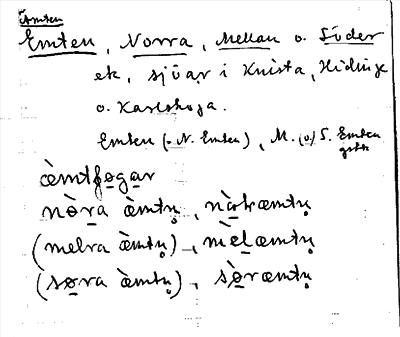 Ämten
Emten, Norra, Mellan o. Söder
ek, sjöar i Knista, Hidinge
o. Karlskoga.
Emten (= N. Emten), M. (o) S. Emten
gstk
æ̀mtfo̲gar
nò̲ra æ̀mtṇ, nò̲ræmtṇ
(melra æ̀mtṇ), mè̲læmtṇ
(sø̲ra æ̀mtṇ), sø̲̀ræmtṇ